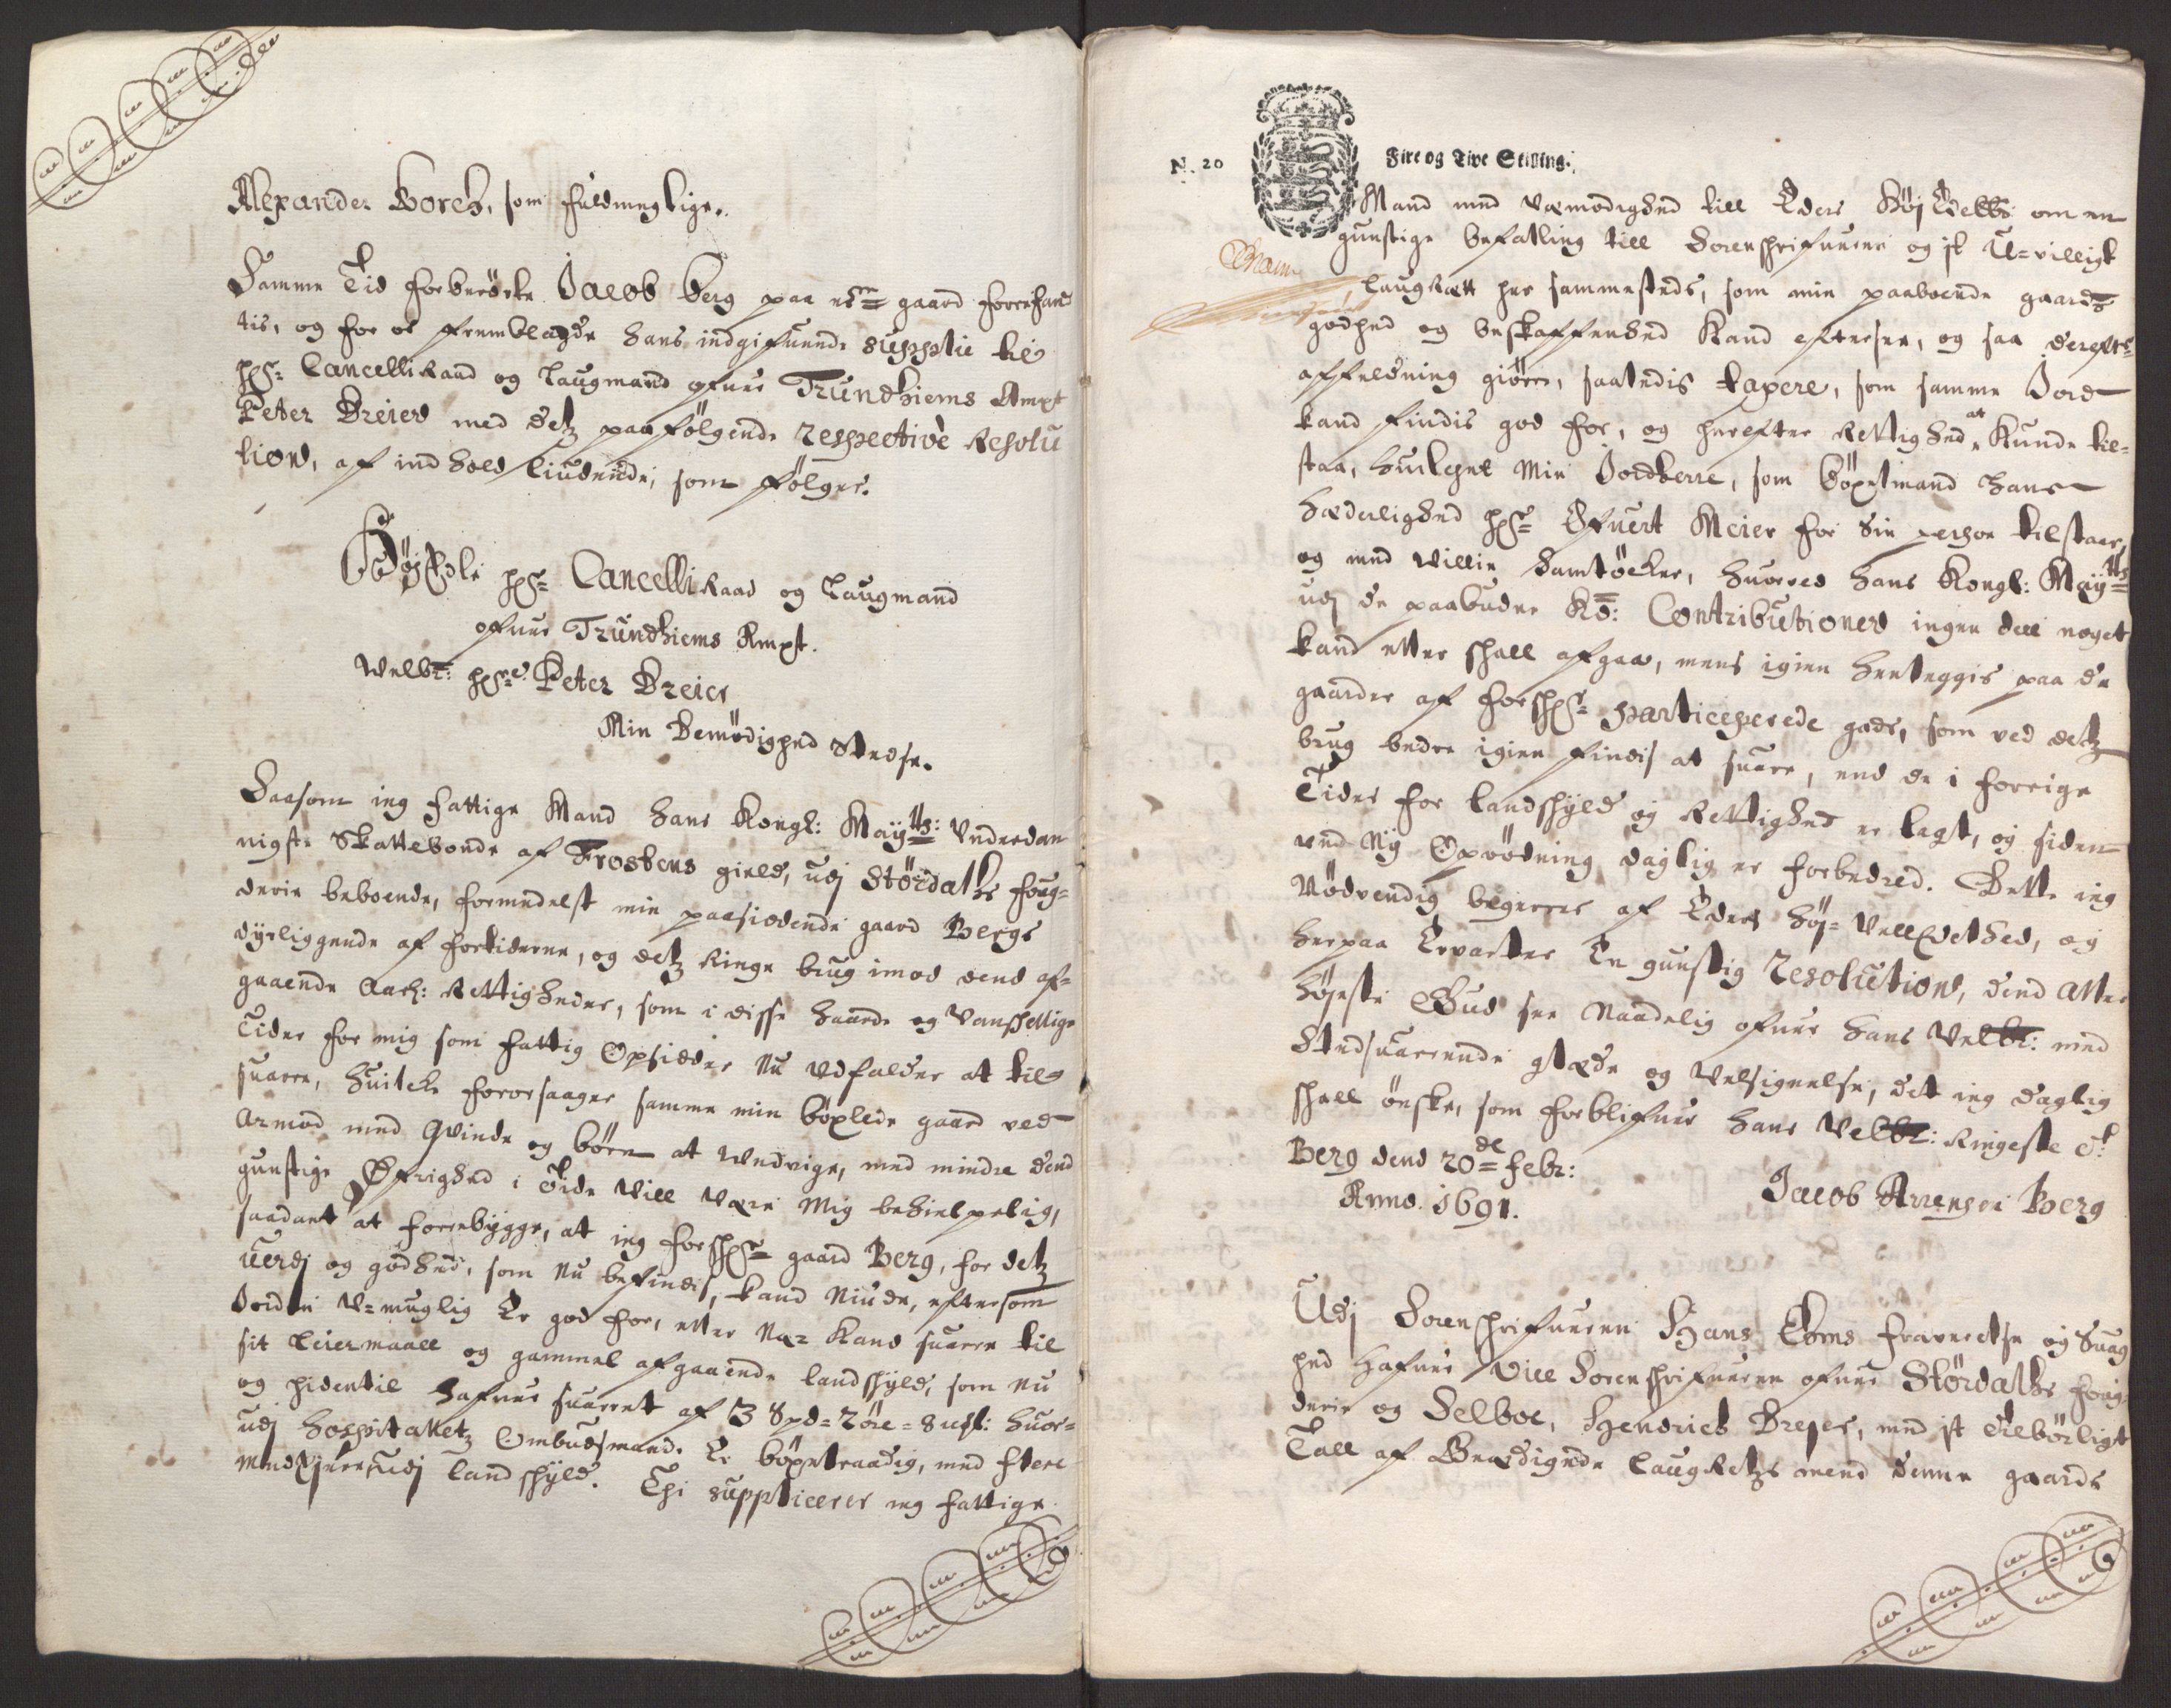 Alexander Borch, som fuldmegtige.
Samme Tid forberørte Jacob Berg paa gaard forrefand
tis, og for os fremblagde hans indgifuende supplic til
hr: Cancelli Raad og Laugmand ofuer Trundhiems Ampt
Peter Dreier med detz paafølgende respective Resolu
tion, af indhold liudende, som følger.
Højædle hr: Cancelli Raad og Laugmand
ofuer Trundhiems Ampt.
Welbr: hr: Peter Dreier
Min Demødighed Stedse.
Saasom ieg fattige Mand hans Kongl: Maÿtts: Underdan
nigste Skattebonde af Frostens gield, udj Størdahls foug-
derie beboende, formedelst min paasidende gaard Bergs
dyrliggende af fortiderne, og detz Ringe brug imod dend af-
gaaende Aarl: Rettigheder, som i disse haarde og Vanskellige
Tider for mig som fattig Opsidder Nu Udfalder at til-
suarre, huilche foraarsaager samme min bøxlede gaard ved
Armod med Qvinde og børn at Undvige, med mindre dend
gunstige Øfrighed i Tide Vill Være Mig behielpelig,
saadant at forrebygge, at ieg forschr: gaard Berg, for detz
Uerdj og godhed, som Nu befindis, kand Niude, eftersom
Jorden U-muglig Er god for, eller Nær Kand suarre til
sit Leiermaall og gammel afgaaende landskyld, som Nu
og hidentil hafuer suarret af 3 Spd= 2 øre= 8 mkl: huor-
udj Hospitalletz Ombudsmand. Er bøxelraadig, med flere
medEjere udj landskyld. Thi suppliceres ieg fattige
N. 20
Fire og Tive Skilling.
Mand med Ydmødighed till Eders Høj Edelhd: om en
gunstige befalling till Sorenskrifueren og it U-villigt
LaugRætt her sammesteds, som min paaboende gaards
godhed og beskaffenhed Kand eftersee, og saa derefter
affældning giøre, saaledis taxere, som samme Jord
kand findis god for, og herefter Rettighed at Kunde til-
staa, huilchet Min Jordherre, som bøxelmand hans
hæderlighed hr: Efuert Meier for Sin person tilstaar,
og med Willie Samtøcher, huorved hans Kongl: Maÿtts
udj de paabudne Kd: Contributioner ingen dell noget
kand eller skall afgaa, mens igien henleggis paa de
gaarder af forschr: participerede gods, som ved detz
brug bedre igien findis at suare, end de i forrige
Tider for landskyld og Rettighed er lagt, og siden
ved Ny Oprødning daglig er forbedred. Dette ieg
Nødvendig begierer af Eders Høj-Vellædelhed, og
herpaa Ervarter En gunstig Resolution, dend Aller
højeste Gud see Naadelig ofuer hans Velbr: med
Stedsuarende glæde og Velsignelse, det ieg daglig
skall ønske, som forblifuer hans Velbr: Ringeste
Berg dend 20de Febr:
Anno. 1691.
Jacob Arrensen Berg
Udj Sorenskrifueren Hans Ebms fraverelse og Suag
hed hafuer Vice Sorenskrifueren ofuer Størdahls foug
derie og Selboe, Hendrich Drejer, med it tilbørligt
Tall af Eedigede LaugRetzmend denne gaards